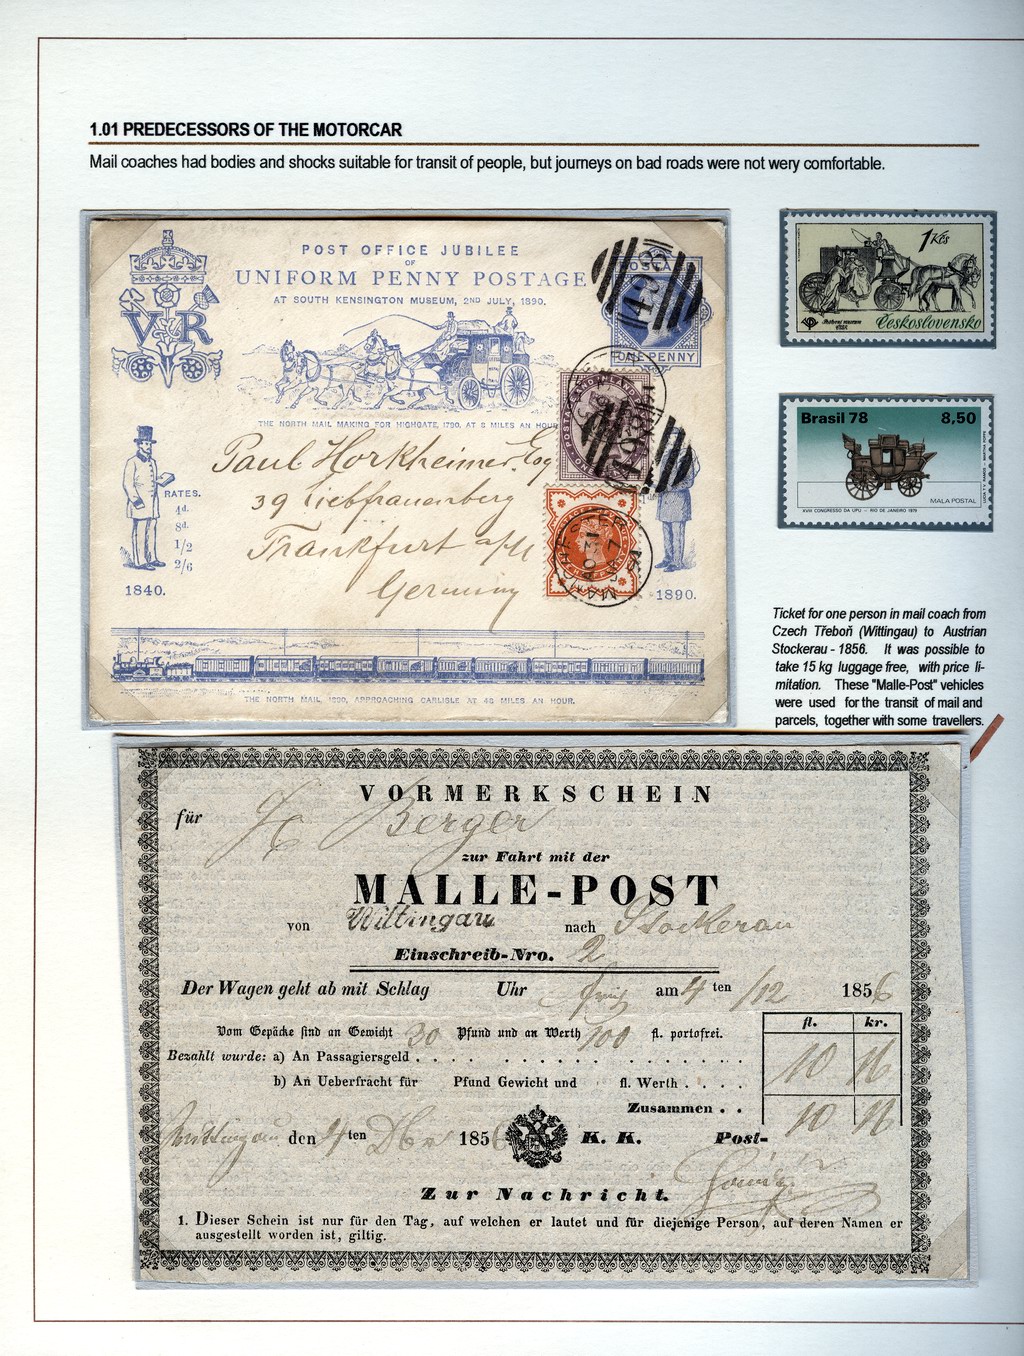 1.01 PREDECESSORS OF THE MOTORCAR
Mail coaches had bodies and shocks suitable for transit of people, but journeys on bad roads were not wery comfortable.
POST OFFICE JUBILEE
OF
UNIFORM PENNY POSTAGE
AT SOUTH KENSINGTON MUSEUM, 2ND JULY, 1890.
VR
498
ONE PENNY
THE NORTH MAIL MAKING FOR HIGHGATE, 1790, AT 8 MILES AN HOUR
Paul Horkheimer Esq
39 Liebfrauenberg
Frankfurt a/M
Germany
RATES.
4d.
8d.
1/2
2/6
1840.
1890.
THE NORTH MAIL, 1890, APPROACHING CARLISLE AT 48 MILES AN HOUR.
1 Kčs
Československo
Brasil 78
8,50
MALA POSTAL
XVIII CONGRESSO DA UPU - RIO DE JANEIRO 1979
Ticket for one person in mail coach from
Czech Třeboň (Wittingau) to Austrian
Stockerau - 1856. It was possible to
take 15 kg luggage free, with price li-
mitation. These "Malle-Post" vehicles
were used for the transit of mail and
parcels, together with some travellers.
VORMERKSCHEIN
für H Berger
zur Fahrt mit der
MALLE-POST
von Wittingau nach Stockerau
Einschreib-Nro. 2
Der Wagen geht ab mit Schlag Uhr früh am 4 ten /12 1856
Vom Gepäcke sind an Gewicht 30 Pfund und an Werth 100 fl. portofrei.
fl. kr.
Bezahlt wurde: a) An Passagiersgeld . . . . 10 16
b) An Ueberfracht für Pfund Gewicht und fl. Werth . . . .
Zusammen . . 10 16
Wittingau den 4 ten 1856 K. K. Post-
Zur Nachricht.
1. Dieser Schein ist nur für den Tag, auf welchen er lautet und für diejenige Person, auf deren Namen er
ausgestellt worden ist, giltig.